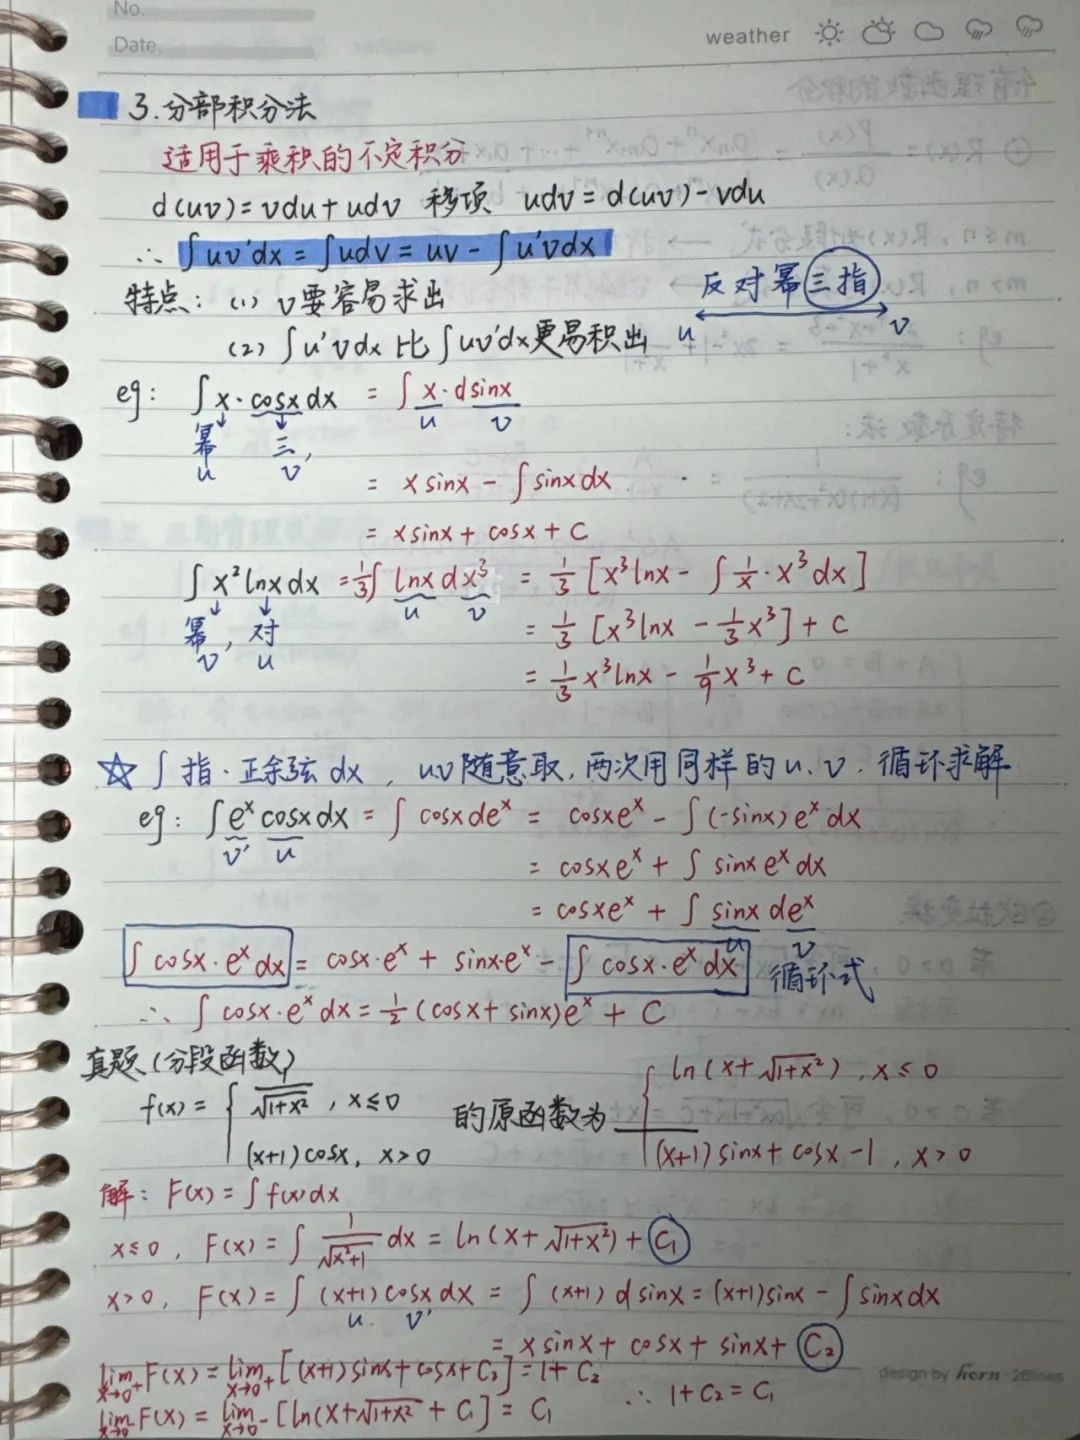 No.
Date.
weather
3.分部积分法
适用于乘积的不定积分
d(uv)=vdu+udv 移项 udv=d(uv)-vdu
∴ ∫uv'dx=∫udv=uv-∫u'vdx
特点:(1) v要容易求出
反对幂三指
u v
(2) ∫u'vdx比∫uv'dx更易积出
eg: ∫x·cosxdx = ∫x·dsinx
u v
幂 三
u v'
= xsinx - ∫sinxdx
= xsinx + cosx + C
∫x²lnxdx = 1/3∫lnxdx³ = 1/3[x³lnx - ∫1/x·x³dx]
u v
幂, 对
v' u
= 1/3[x³lnx - 1/3x³] + C
= 1/3x³lnx - 1/9x³ + C
☆ ∫指·正余弦dx, u.v随意取,两次用同样的u、v,循环求解
eg: ∫eˣcosxdx = ∫cosxdeˣ = cosxeˣ - ∫(-sinx)eˣdx
v' u
= cosxeˣ + ∫sinxeˣdx
= cosxeˣ + ∫sinxdeˣ
u v
∫cosx·eˣdx = cosx·eˣ + sinx·eˣ - ∫cosx·eˣdx 循环式
∴ ∫cosx·eˣdx = 1/2(cosx+sinx)eˣ + C
真题(分段函数)
f(x) = { 1/√(1+x²), x≤0
(x+1)cosx, x>0
的原函数为
{ ln(x+√(1+x²)), x≤0
(x+1)sinx+cosx-1, x>0
解: F(x)=∫f(x)dx
x≤0, F(x)=∫1/√(x²+1)dx = ln(x+√(1+x²))+C₁
x>0, F(x)=∫(x+1)cosxdx = ∫(x+1)dsinx = (x+1)sinx - ∫sinxdx
u. v'
= xsinx + cosx + sinx + C₂
lim x→0⁺ F(x) = lim x→0⁺ [(x+1)sinx+cosx+C₂] = 1+C₂
∴ 1+C₂=C₁
lim x→0⁻ F(x) = lim x→0⁻ [ln(x+√(1+x²)+C₁] = C₁
design by hern · 26lines